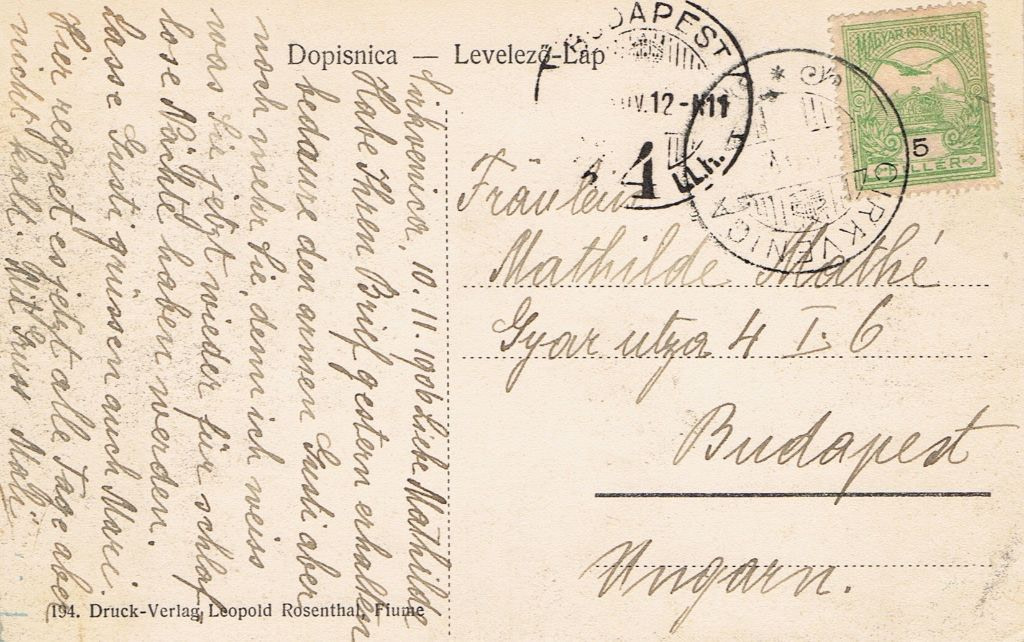 Dopisnica — Levelező-Lap
Cirkvenica, 10.11.1906 Liebe Mathilde
Habe Ihren Brief gestern erhalten
bedaure den armen Gusti aber
noch mehr Sie, denn ich weiss
was Sie jetzt wieder für schlaf
lose Nächte haben werden.
Lasse Gusti grüssen auch Marie.
Hier regnet es jetzt alle Tage aber
nicht kalt. Mit Gruss
BUDAPEST
NOV.12
4
CIRKVENICA
MAGYAR KIR. POSTA
5
FILLÉR
Fräulein
Mathilde Mathé
Gyar utza 4 I. 6
Budapest
Ungarn.
194. Druck-Verlag Leopold Rosenthal, Fiume